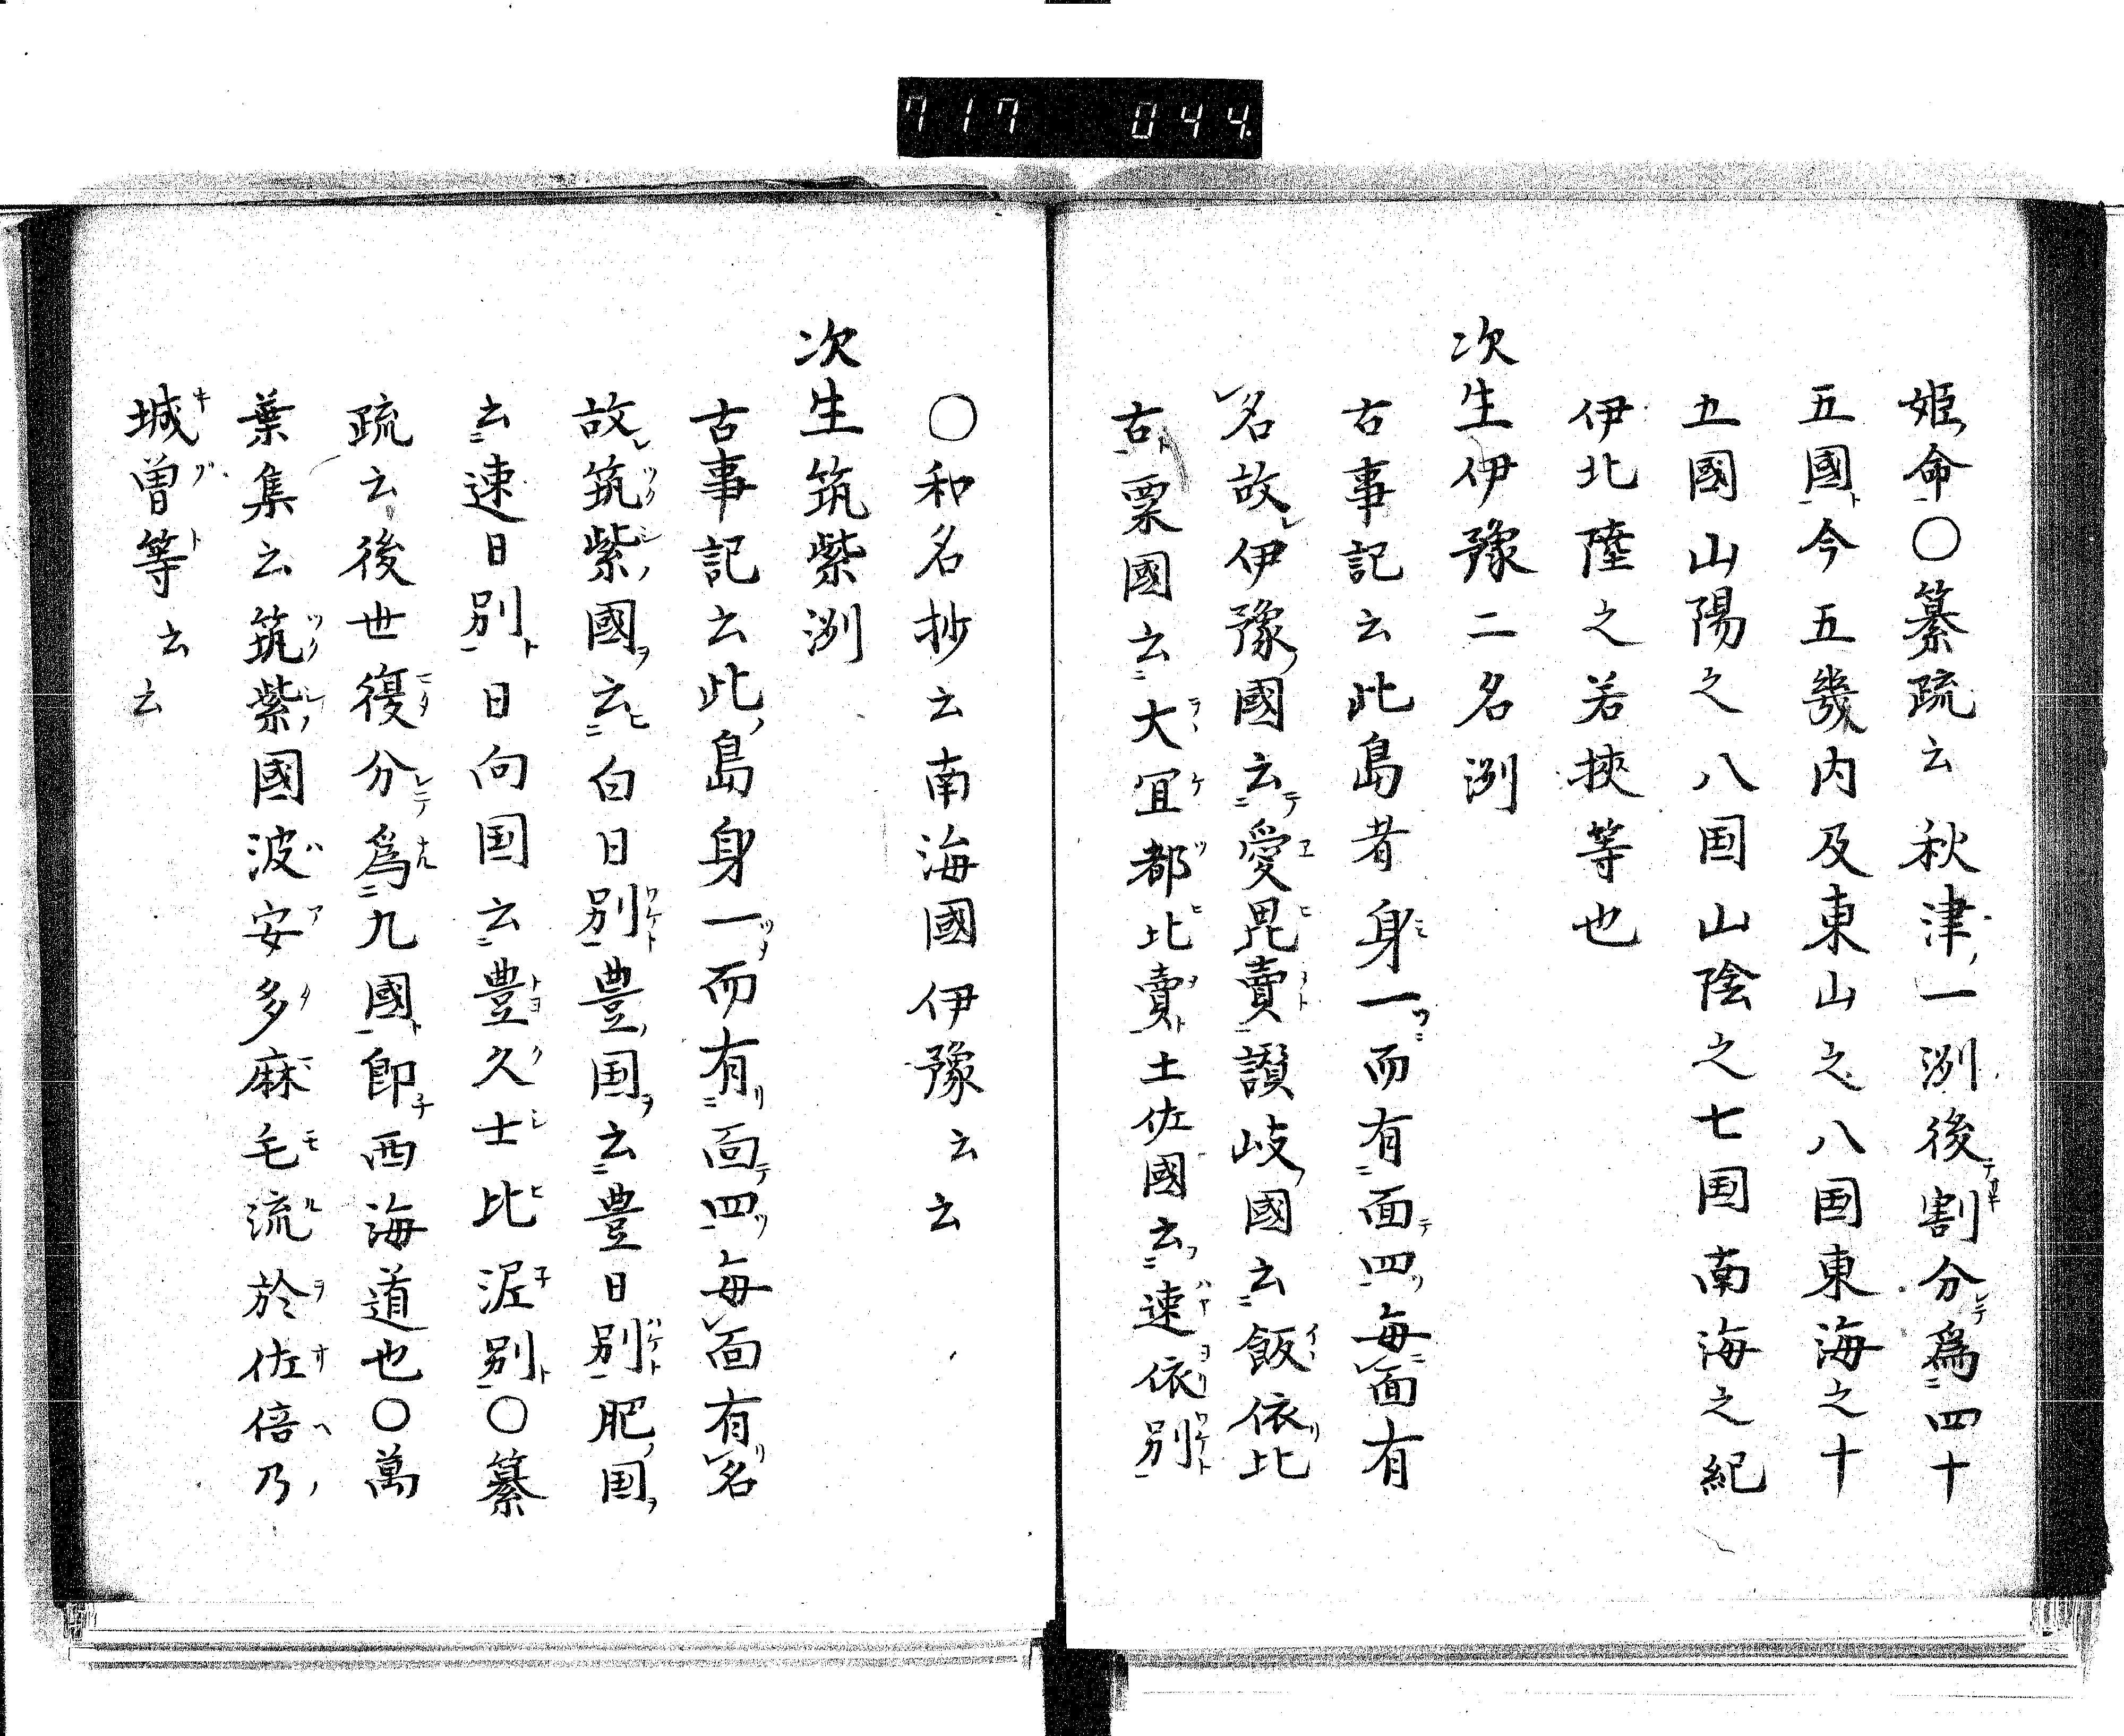 717 044
姫命〇纂疏云秋津一洲後割分爲四十
五國今五畿内及東山之八国東海之十
五國山陽之八国山陰之七国南海之紀
伊北陸之若挾等也
次生伊豫二名洲
古事記云此島者身一而有面四每面有
名故伊豫國云愛毘賣讃岐國云飯依比
古粟國云大冝都比賣土佐國云速依別
〇和名抄云南海國伊豫云云
次生筑紫洲
古事記云此島身一而有面四每面有名
故筑紫國云白日別豊国云豊日別肥国
云速日別日向国云豊久士比泥別〇纂
疏云後世復分爲九國即西海道也〇萬
葉集云筑紫國波安多麻毛流於佐倍乃
城曽等云云